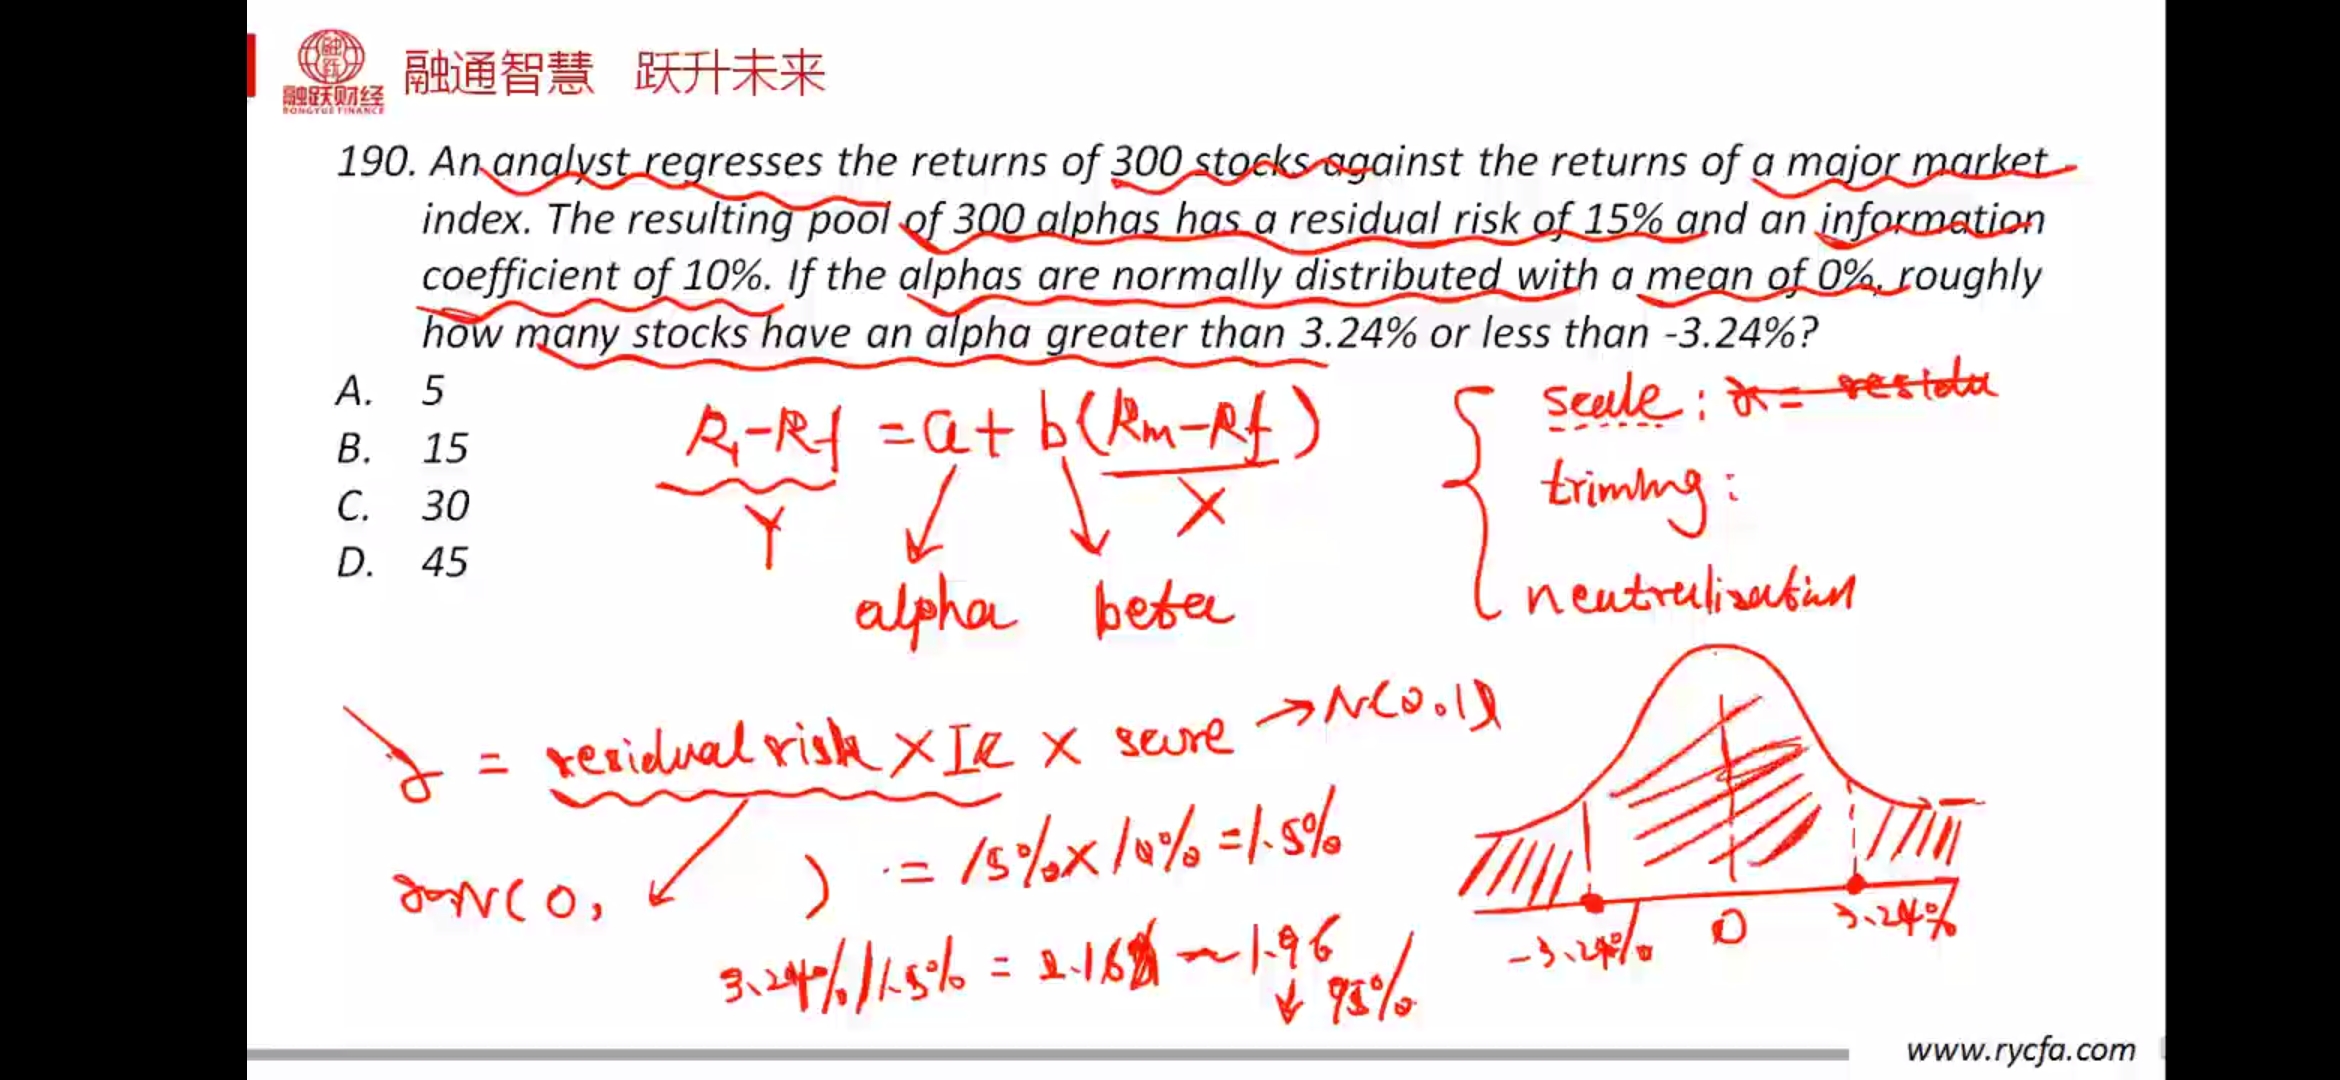 融通智慧 跃升未来
融跃财经
RONGYUE FINANCE
190. An analyst regresses the returns of 300 stocks against the returns of a major market
index. The resulting pool of 300 alphas has a residual risk of 15% and an information
coefficient of 10%. If the alphas are normally distributed with a mean of 0%, roughly
how many stocks have an alpha greater than 3.24% or less than -3.24%?
A. 5
B. 15
C. 30
D. 45
R₁-Rf = a + b(Rm-Rf)
Y
X
alpha beta
scale:
triming:
neutralization
= residual risk × IC × score → N(0,1)
N(0, ) = 15% × 10% = 1.5%
3.24%/1.5% = 2.16 ~ 1.96
↓ 95%
-3.24% 0 3.24%
www.rycfa.com